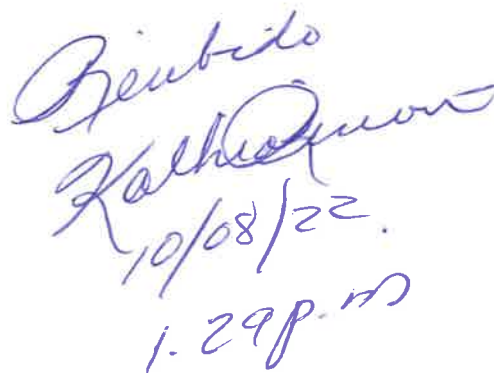 Recibido
10/08/22.
1.29 p.m